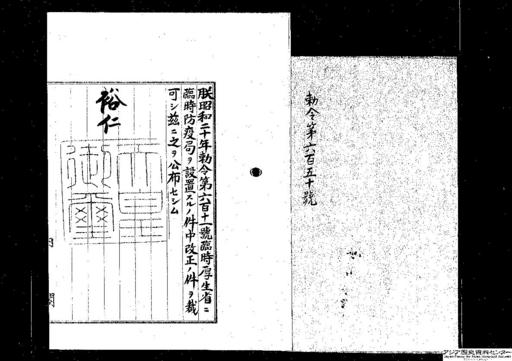 勅令第六百五十號
朕昭和二十年勅令第六百十一號臨時厚生省ニ
臨時防疫局ヲ設置スルノ件中改正ノ件ヲ裁
可シ茲ニ之ヲ公布セシム
裕仁
天皇
御璽
アジア歴史資料センター